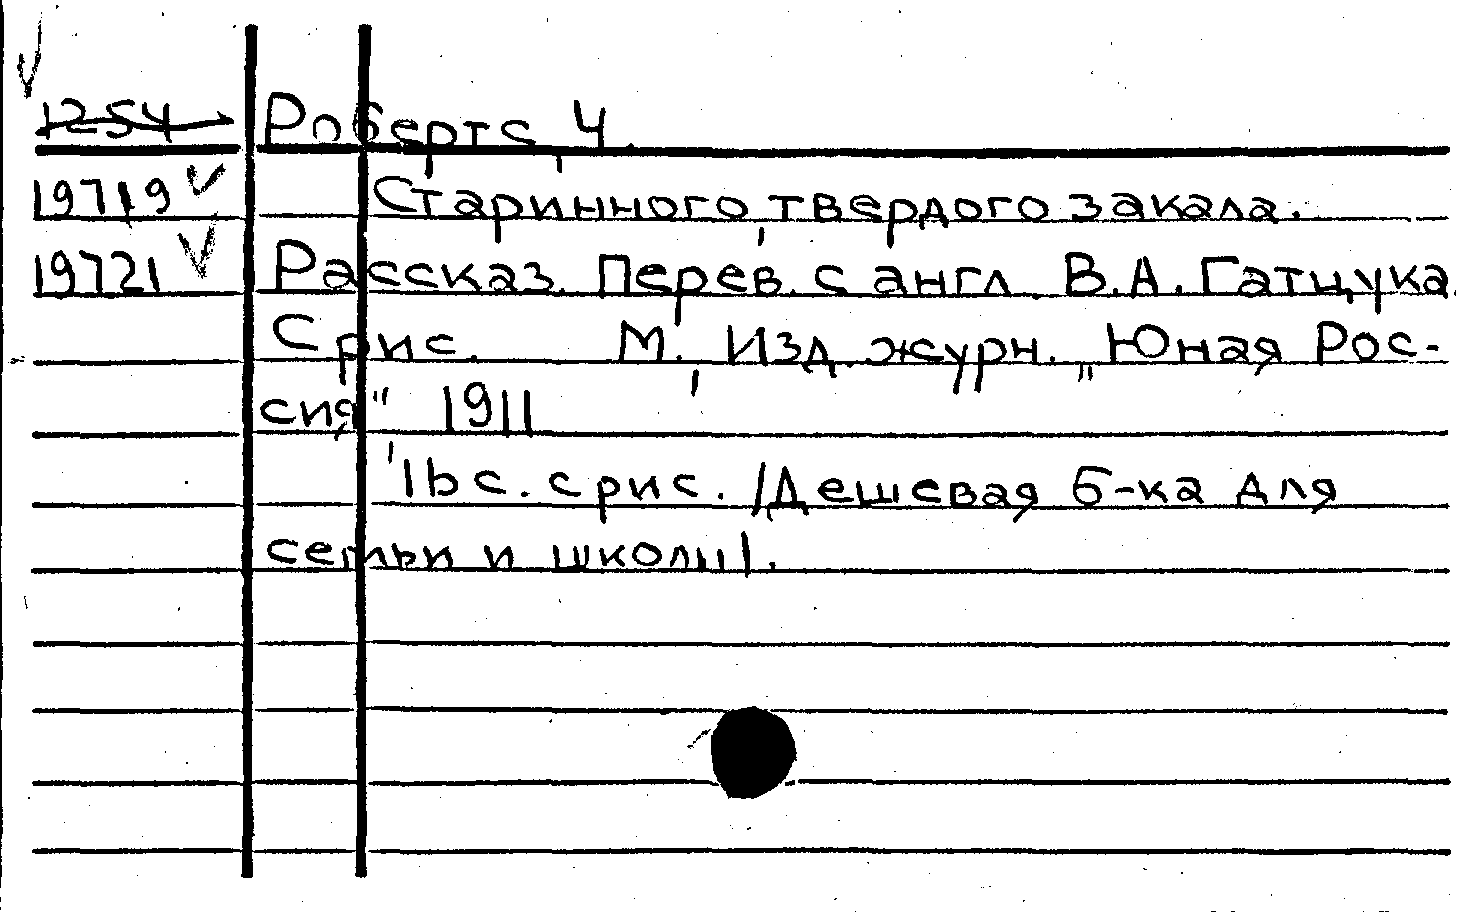 1254 Робертс, Ч.
19719 Старинного, твердого закала.
19721 Рассказ. Перев. с англ. В.А. Гатцука
С рис. М., Изд. журн. „Юная Рос-
сия", 1911
16 с. с рис. /Дешевая б-ка для
семьи и школы/.